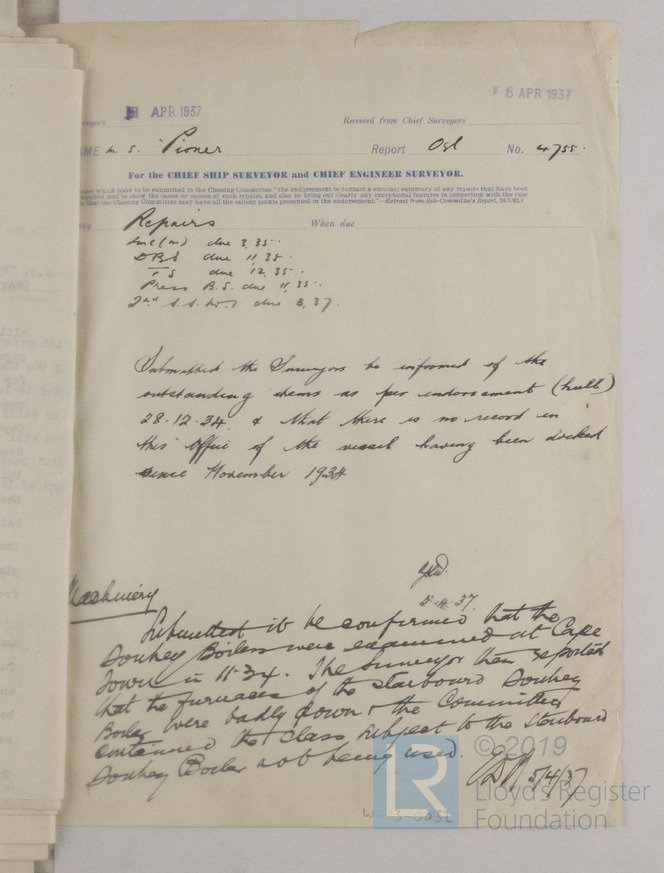 APR 1937
6 APR 1937
Received from Chief Surveyors
NAME M. S. "Pioner Report Osl No. 4755.
For the CHIEF SHIP SURVEYOR and CHIEF ENGINEER SURVEYOR.
which have to be submitted to the Classing Committee "the endorsement to contain a succinct summary of any repairs that have been
required and to show the cause or causes of such repairs, and also to bring out clearly any exceptional features in connection with the case
that the Classing Committee may have all the salient points presented in the endorsement."—(Extract from Sub-Committee's Report,
Repairs When due
due 3,35.
DBS due 11,35.
TS due 12,35.
Press B.S. due 11,35.
2nd S.S. No.1 due 3,37.
Submitted the Surveyors be informed of the
outstanding items as per endorsement (hull)
28.12.34. & that there is no record in
this Office of the vessel having been docked
since November 1934
5.4.37.
Machinery
Submitted it be confirmed that the
Donkey Boilers were examined at Cape
Town in 11.34. The Surveyor then reported
that the furnaces of the starboard Donkey
Boiler were badly down & the Committee
continued the class subject to the starboard
Donkey Boiler not being used.
5/4/37
LR
© 2019
Lloyd's Register
Foundation